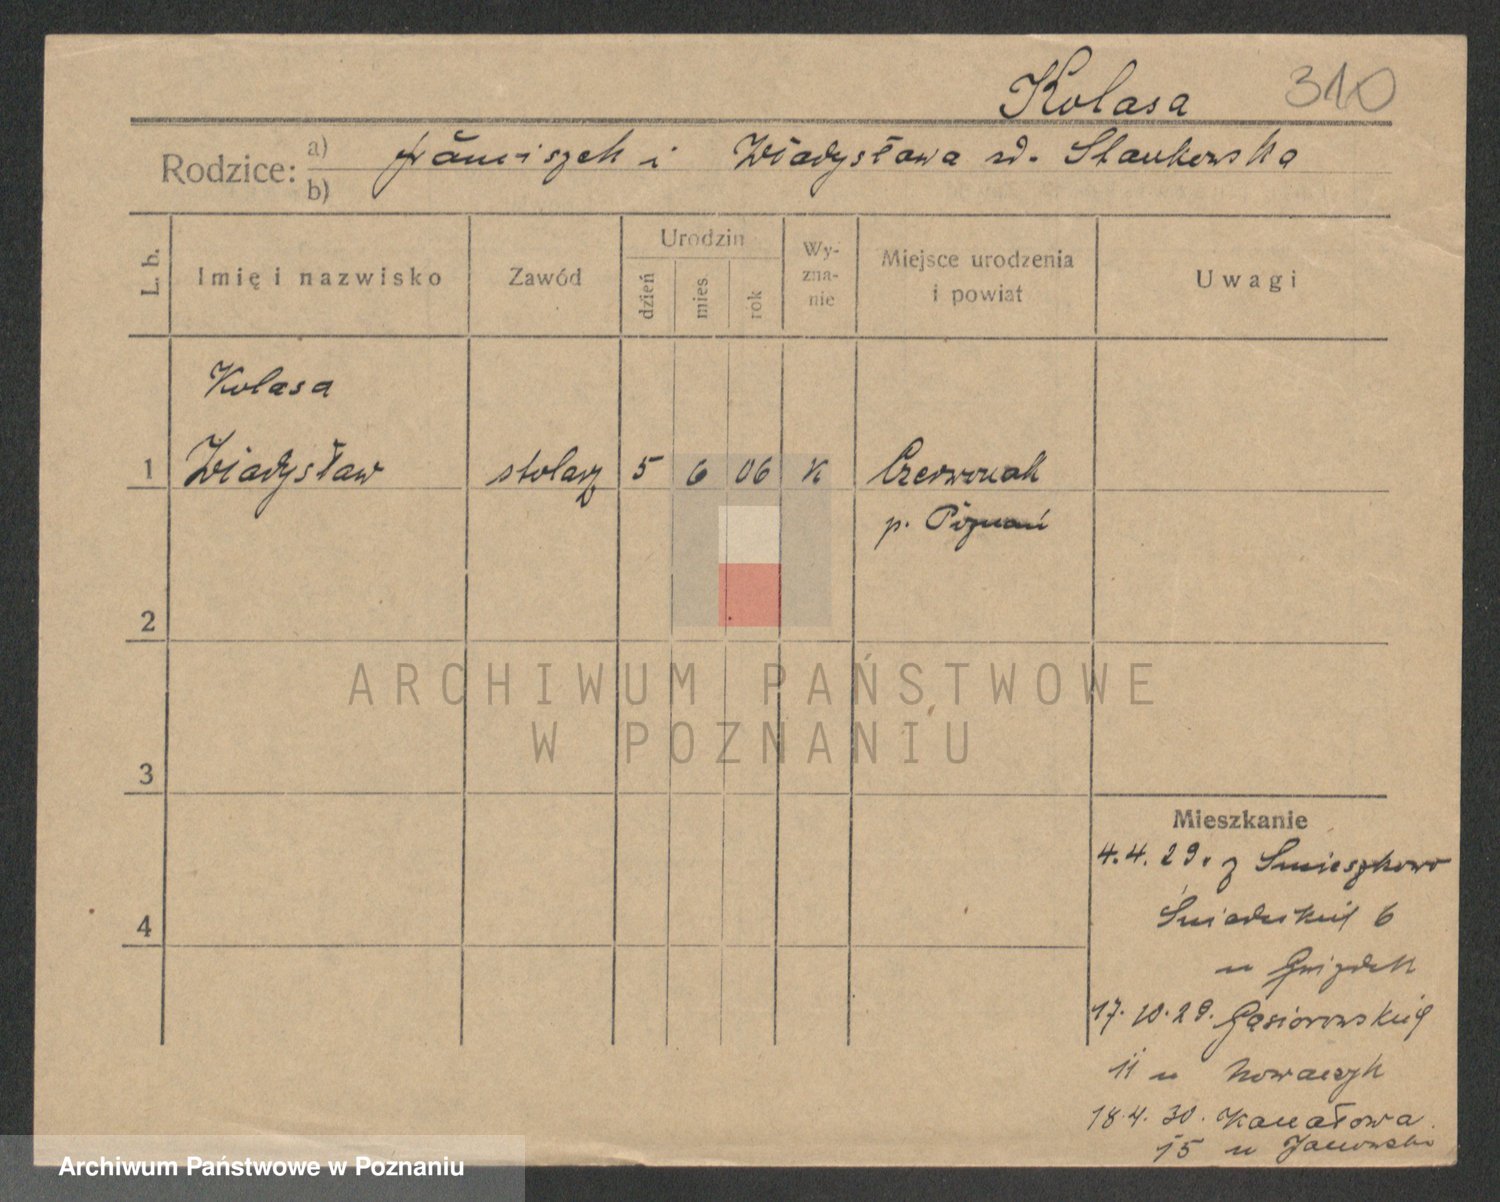 Kolasa 310
Rodzice: a) Franciszek i Władysława zd. Stankowska
b)
L. b. Imię i nazwisko Zawód Urodzin dzień mies. rok Wy-zna-nie Miejsce urodzenia i powiat Uwagi
Kolasa
1 Władysław stolarz 5 6 06 K Czerwonak
p. Poznań
2
ARCHIWUM PAŃSTWOWE
W POZNANIU
3
Mieszkanie
4.4.29. z Smieszkowo
4 Śniadeckich 6
u
17.10.29. Gąsiorowskich
11 u Nowaczyk
18.4.30. Kanałowa
15 u Janowski
Archiwum Państwowe w Poznaniu